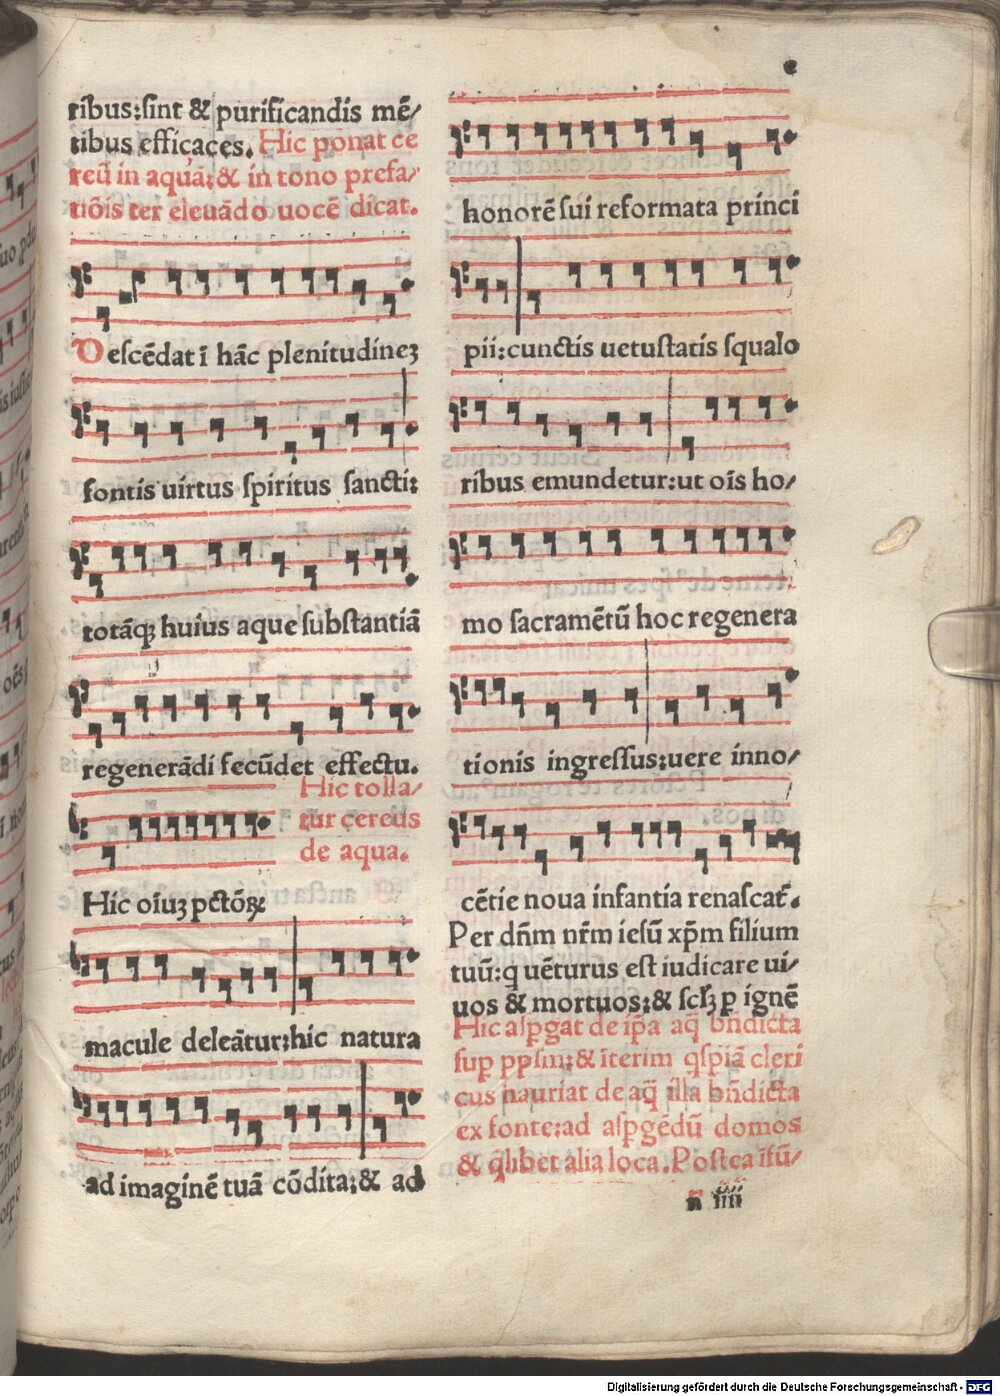 c
ribus:sint & purificandis mē/
tibus efficaces. Hic ponat ce
reū in aquā:& in tono prefa/
tiōis ter eleuādo uocē dicat.
Descēdat ī hāc plenitudineꝫ
fontis uirtus spiritus sancti:
totāqꝫ huius aque substantiā
regenerādi fecūdet effectu.
Hic tolla/
tur cereus
de aqua.
Hic oīuꝫ pctōꝝ
macule deleātur:hic natura
ad imaginē tuā cōdita:& ad
honorē sui reformata princi
pii:cunctis uetustatis squalo
ribus emundetur:ut oīs ho/
mo sacramētū hoc regenera
tionis ingressus:uere inno/
cētie noua infantia renascat̄.
Per dn̄m nr̄m iesū xp̄m filium
tuū:q uēturus est iudicare ui/
uos & mortuos:& sclꝫ p ignē
Hic aspgat de ip̄a aq̄ bn̄dicta
sup ppsm̄:& īterim qspiā cleri
cus hauriat de aq̄ illa bn̄dicta
ex fonte:ad aspgēdū domos
& qlibet alia loca.Postea īfū/
n iiii
Digitalisierung gefördert durch die Deutsche Forschungsgemeinschaft - DFG